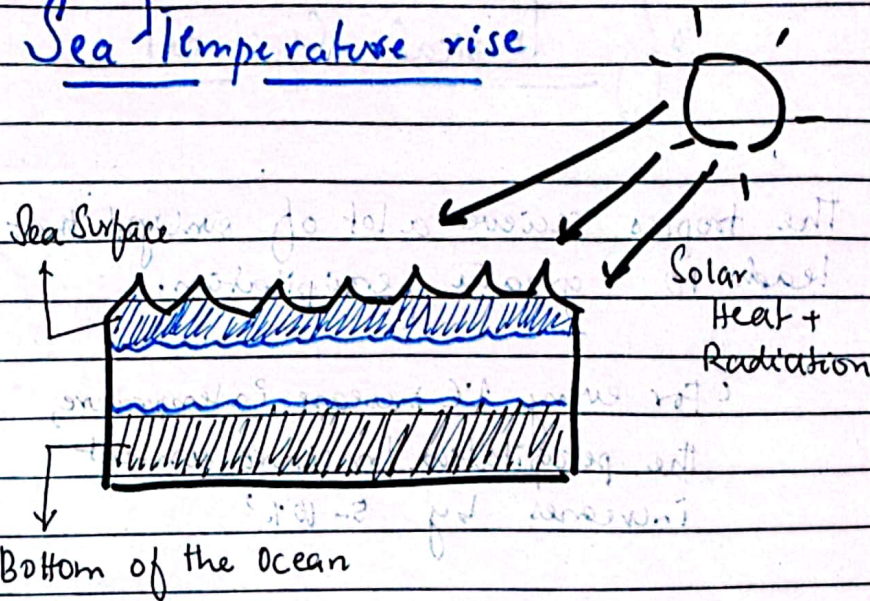 Sea Temperature rise
Sea Surface
Solar
Heat +
Radiation
Bottom of the Ocean